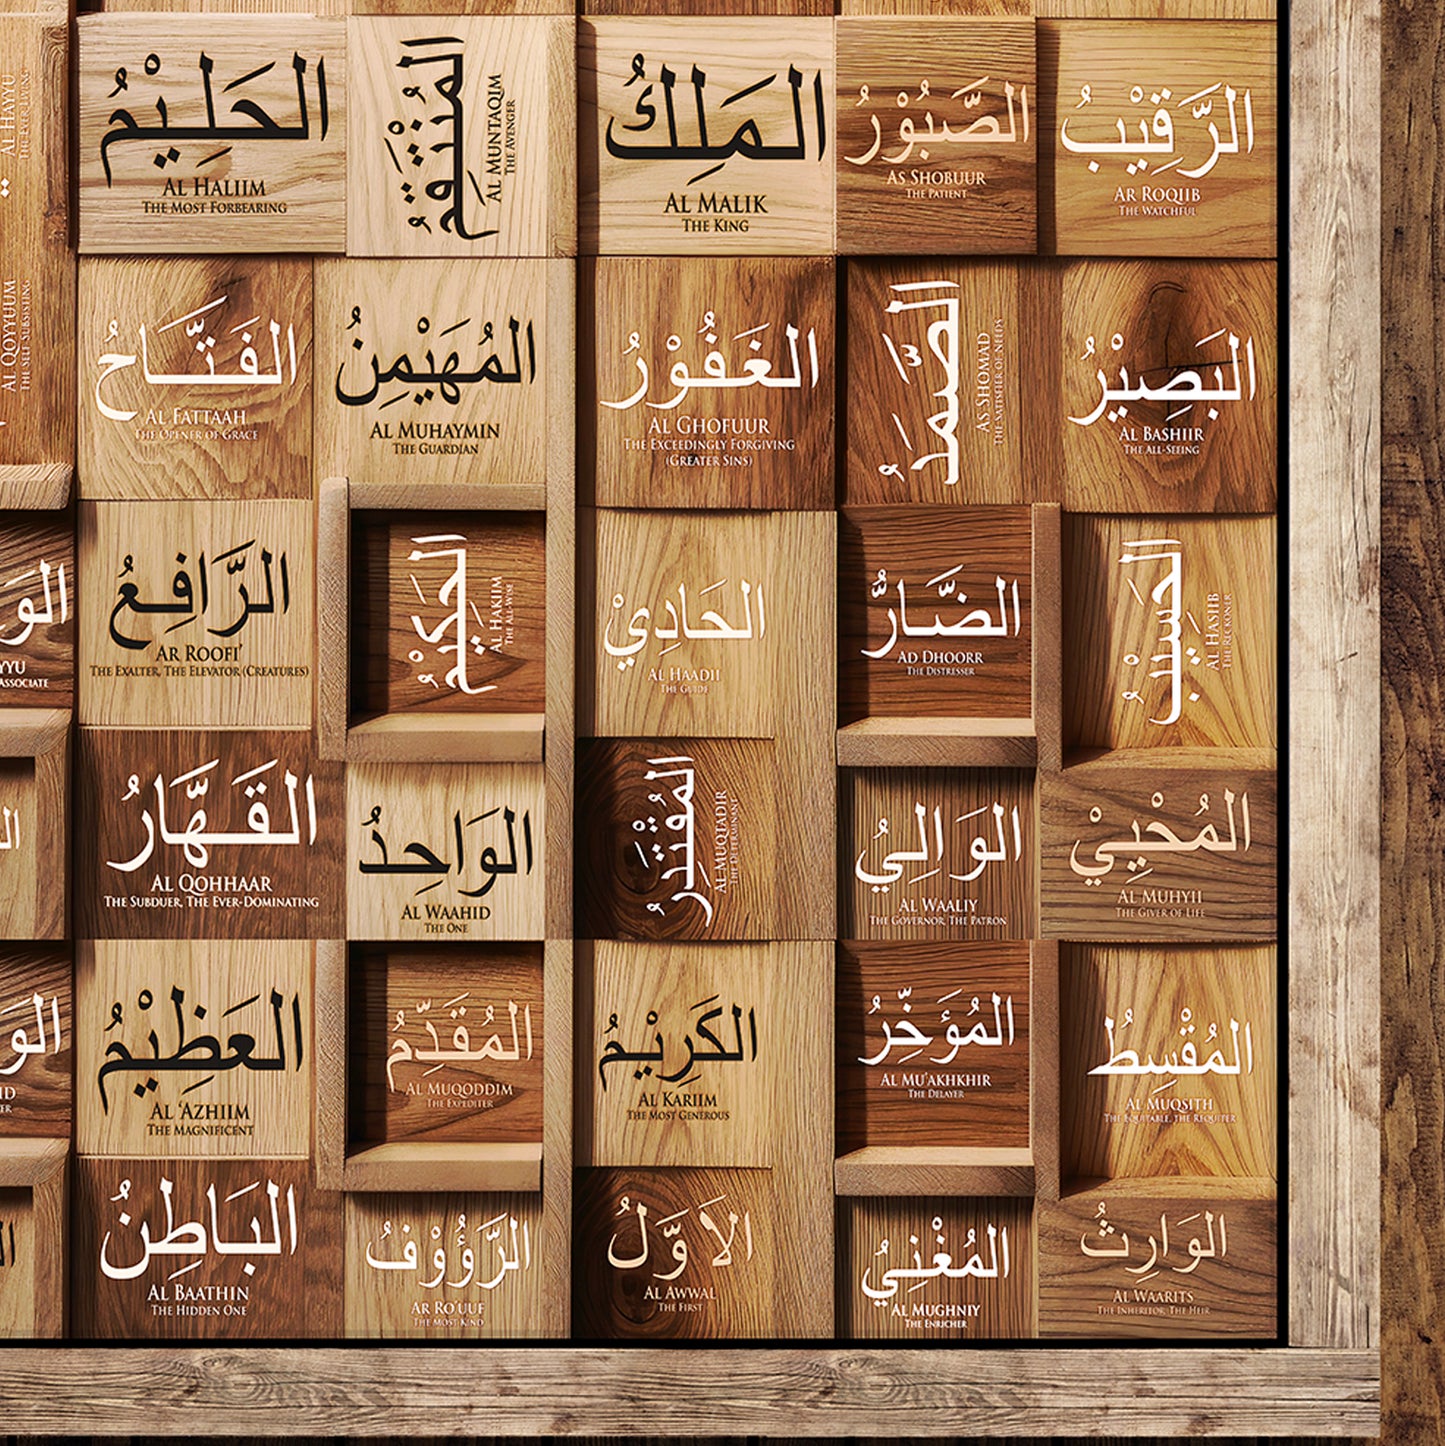 AL HAYYU
THE EVER LIVING
الحَلِيمُ
AL HALIIM
THE MOST FORBEARING
المُنْتَقِمُ
AL MUNTAQIM
THE AVENGER
المَلِكُ
AL MALIK
THE KING
الصَّبُوْرُ
AS SHOBUUR
THE PATIENT
الرَّقِيْبُ
AR ROQIIB
THE WATCHFUL
AL QOYYUUM
THE SELF SUBSISTING
الفَتَّاحُ
AL FATTAAH
THE OPENER OF GRACE
المُهَيْمِنُ
AL MUHAYMIN
THE GUARDIAN
الغَفُوْرُ
AL GHOFUUR
THE EXCEEDINGLY FORGIVING
(GREATER SINS)
الصَّمَدُ
AS SHOMAD
THE SATISFIER OF NEEDS
البَصِيْرُ
AL BASHIIR
THE ALL-SEEING
YYU
ASSOCIATE
الرَّافِعُ
AR ROOFI'
THE EXALTER, THE ELEVATOR (CREATURES)
الحَكِيْمُ
AL HAKIIM
THE ALL-WISE
الحَادِيْ
AL HAADII
THE GUIDE
الضَّارُّ
AD DHOORR
THE DISTRESSER
الحَسِيْبُ
AL HASIIB
THE RECKONER
القَهَّارُ
AL QOHHAAR
THE SUBDUER, THE EVER-DOMINATING
الوَاحِدُ
AL WAAHID
THE ONE
المُقْتَدِرُ
AL MUQTADIR
THE DETERMINANT
الوَالِيُ
AL WAALIY
THE GOVERNOR, THE PATRON
المُحْيِيْ
AL MUHYII
THE GIVER OF LIFE
العَظِيْمُ
AL 'AZHIIM
THE MAGNIFICENT
المُقَدِّمُ
AL MUQODDIM
THE EXPEDITER
الكَرِيْمُ
AL KARIIM
THE MOST GENEROUS
المُؤَخِّرُ
AL MU'AKHKHIR
THE DELAYER
المُقْسِطُ
AL MUQSITH
THE EQUITABLE, THE REQUITER
البَاطِنُ
AL BAATHIN
THE HIDDEN ONE
الرَّؤُوْفُ
AR RO'UUF
THE MOST KIND
الاَوَّلُ
AL AWWAL
THE FIRST
المُغْنِيُ
AL MUGHNIY
THE ENRICHER
الوَارِثُ
AL WAARITS
THE INHERITOR, THE HEIR